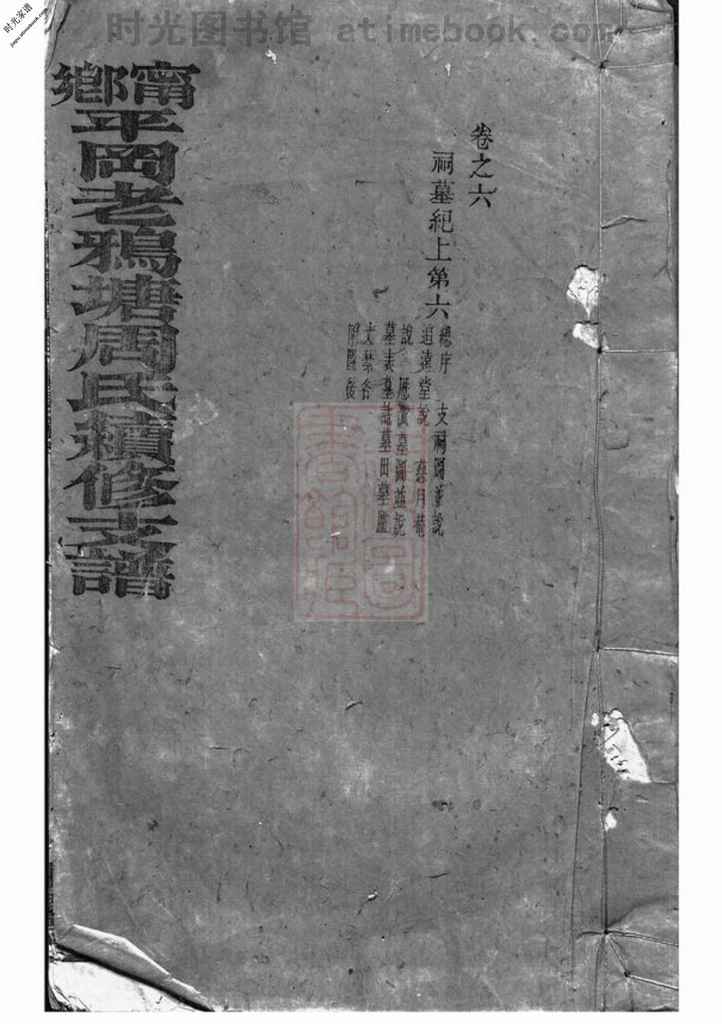 时光图书馆 atimebook.com
时光家谱
jiapu.atimebook.com
卷之六
祠墓紀上第六
總序 支祠圖並說
追遠堂說
說 墓圖並說
墓表墓誌墓田墓廬
甯鄉平岡老鴉塘周氏續修支譜